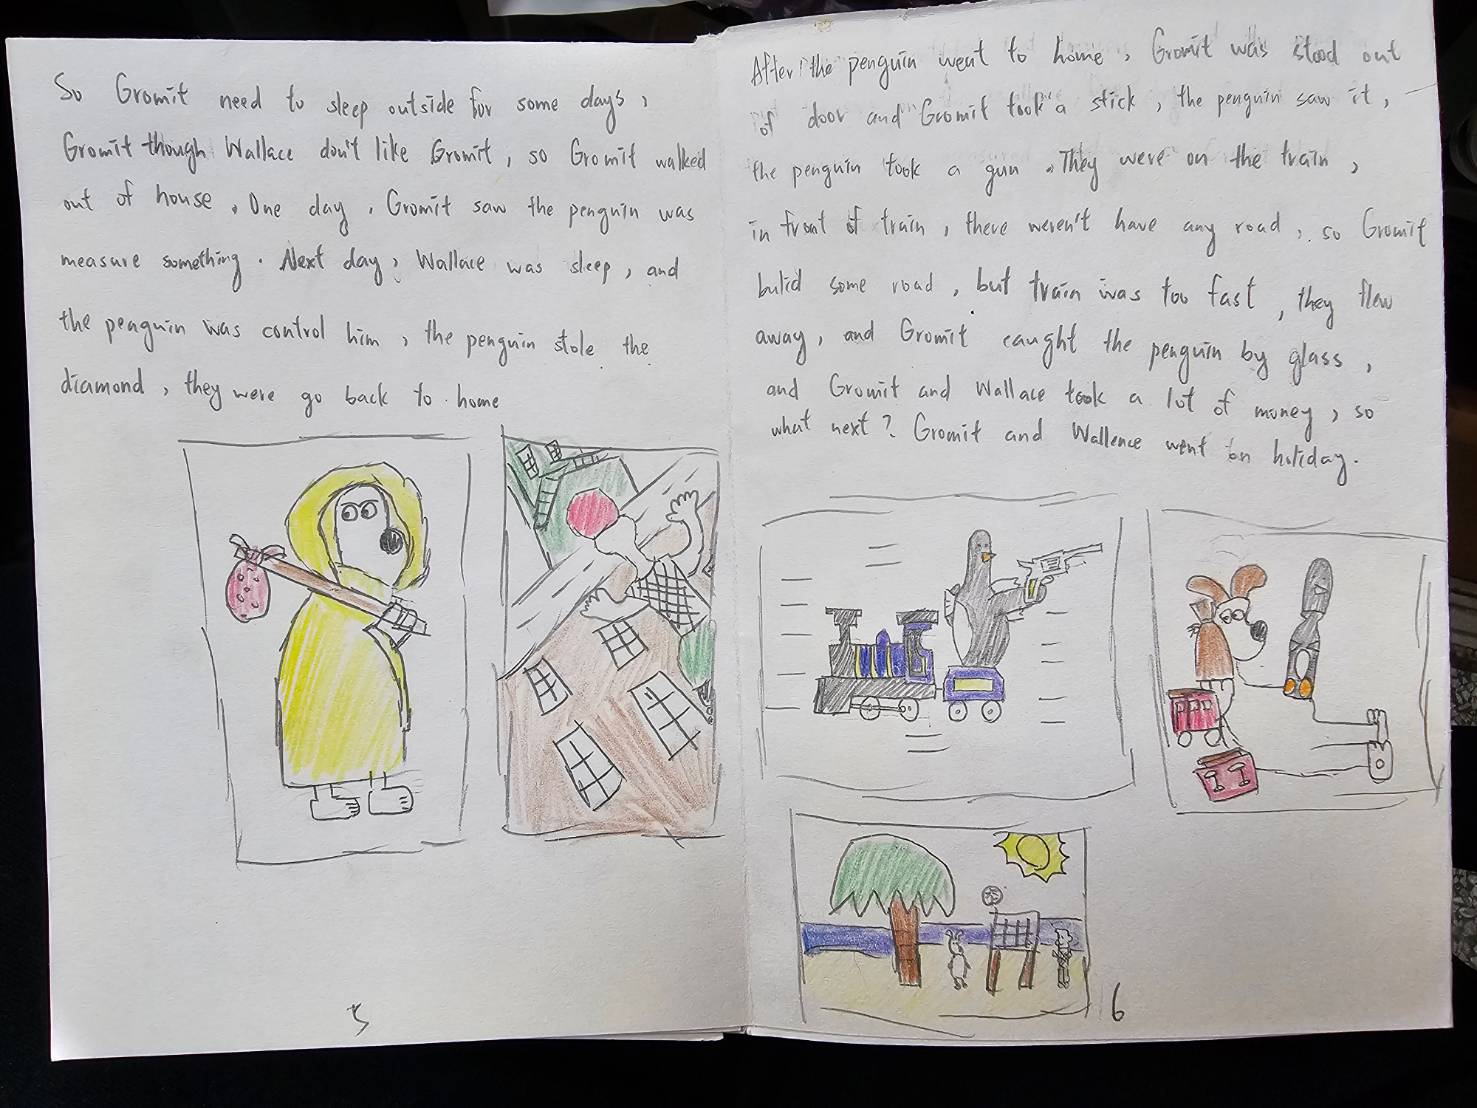 So Gromit need to sleep outside for some days,
Gromit though Wallace don't like Gromit, so Gromit walked
out of house. One day, Gromit saw the penguin was
measure something. Next day, Wallace was sleep, and
the penguin was control him, the penguin stole the
diamond, they were go back to home
5
After the penguin went to home, Gromit was stood out
of door and Gromit took a stick, the penguin saw it,
the penguin took a gun. They were on the train,
in front of train, there weren't have any road, so Gromit
bulid some road, but train was too fast, they flew
away, and Gromit caught the penguin by glass,
and Gromit and Wallace took a lot of money, so
what next? Gromit and Wallence went on holiday.
6